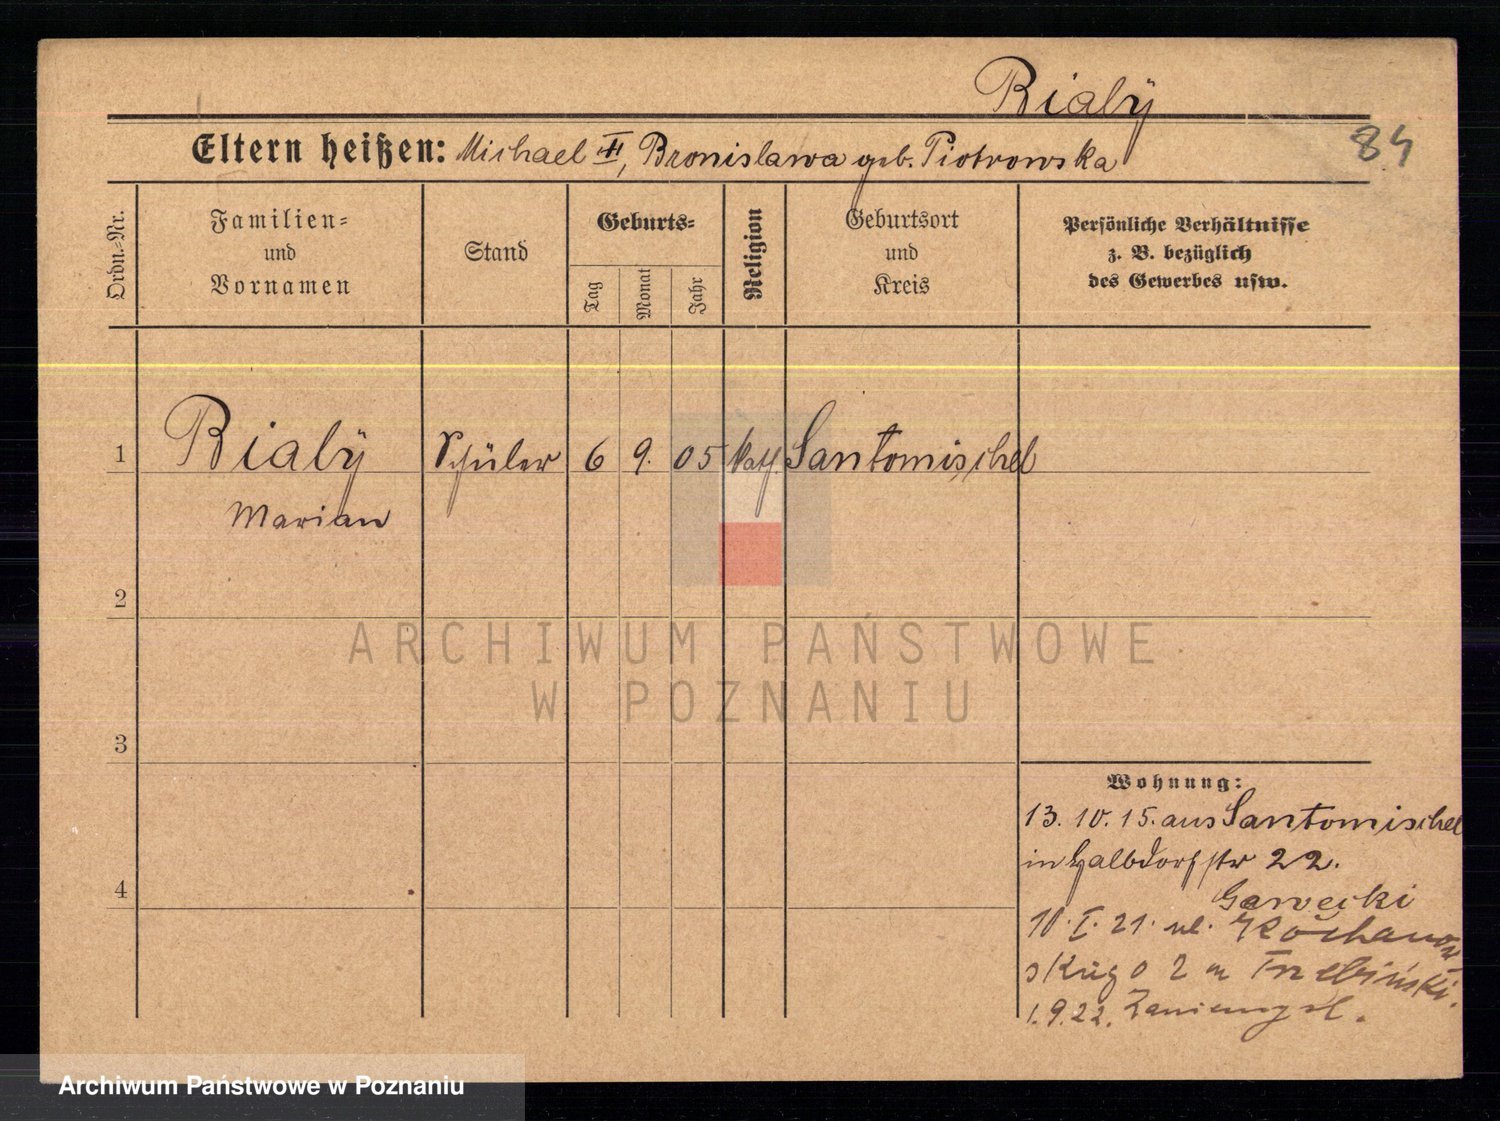 Bialÿ
Eltern heißen: Michael II, Bronislawa geb. Piotrowska
84
Ordn.-Nr.
Familien-
und
Vornamen
Stand
Geburts-
Tag
Monat
Jahr
Religion
Geburtsort
und
Kreis
Persönliche Verhältnisse
z. B. bezüglich
des Gewerbes usw.
1 Bialÿ Schüler 6 9. 05 kath. Santomischel
Marian
2
3
4
Wohnung:
13. 10. 15. aus Santomischel
in Halbdorfstr 22.
Gawecki
10. I. 21. ul. Kochanow
skiego 2 m Trzebiński.
1. 9. 22. Zaniemysl.
ARCHIWUM PAŃSTWOWE
W POZNANIU
Archiwum Państwowe w Poznaniu